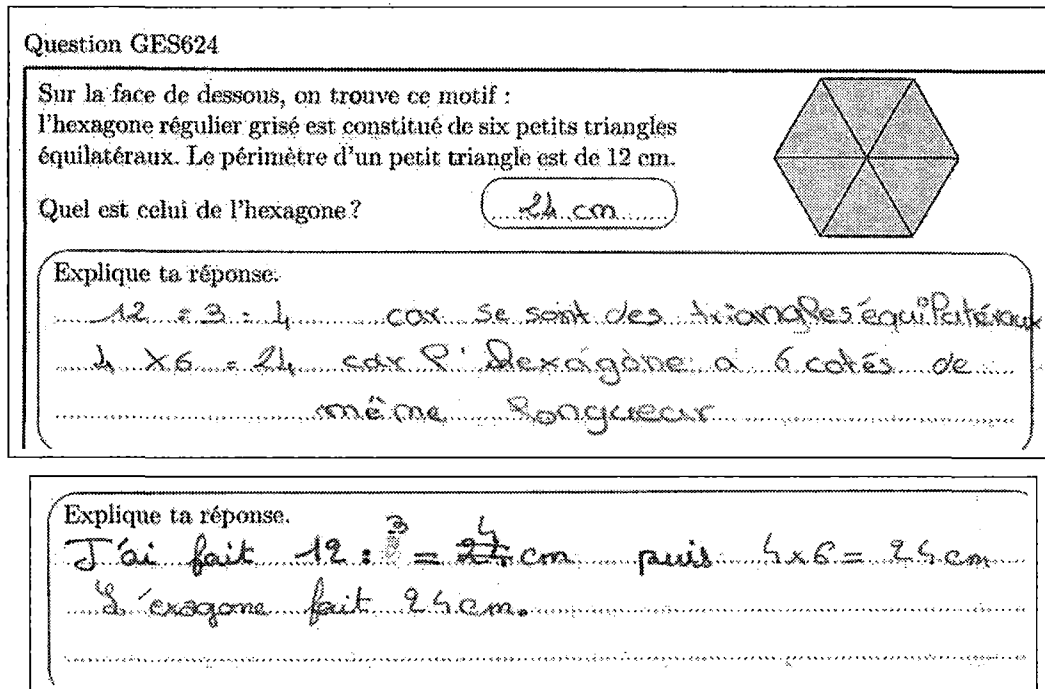 Question GES624
Sur la face de dessous, on trouve ce motif :
l'hexagone régulier grisé est constitué de six petits triangles
équilatéraux. Le périmètre d'un petit triangle est de 12 cm.
Quel est celui de l'hexagone ? 24 cm
Explique ta réponse.
12 : 3 = 4 car se sont des triangles équilatéraux
4 x 6 = 24 car l'hexagône a 6 cotés de
même longueur
Explique ta réponse.
J'ai fait 12 : 3 = 4 cm puis 4 x 6 = 24 cm
L'exagone fait 24 cm.